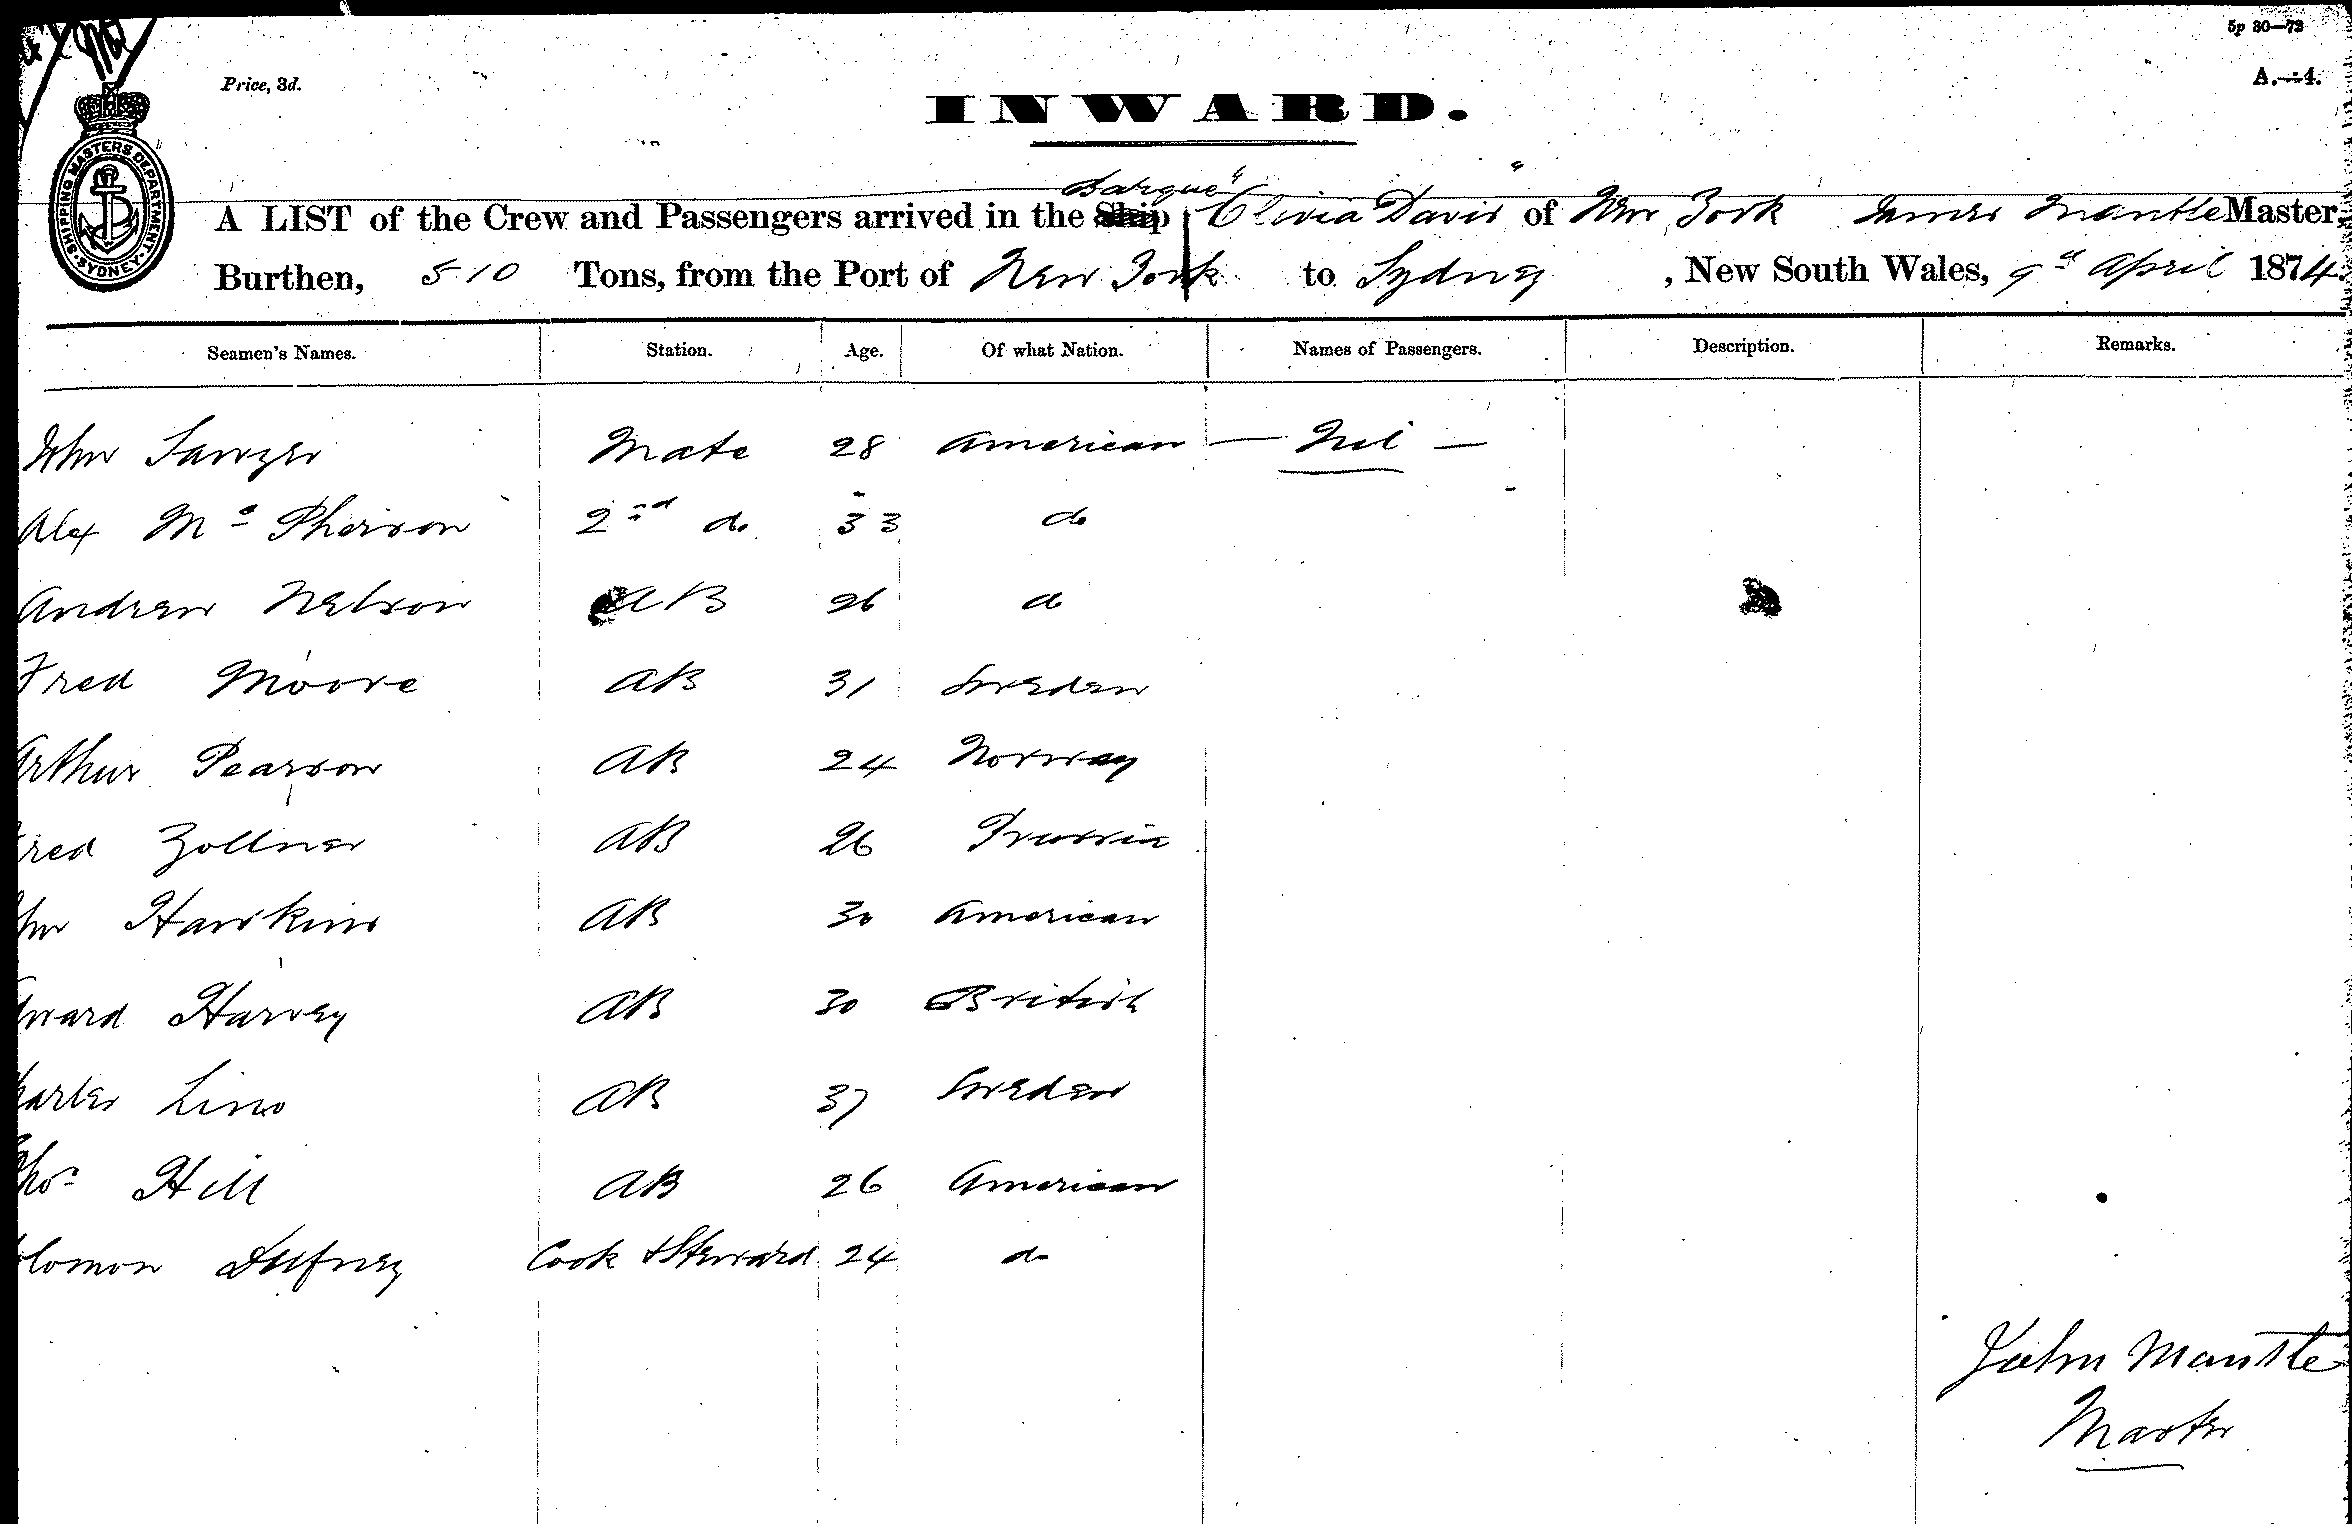 5p 30—73
Price, 3d.
A.—4.
INWARD.
SHIPPING MASTERS DEPARTMENT · SYDNEY ·
Barque
A LIST of the Crew and Passengers arrived in the Ship "Olivia Davis" of New York James Mantle Master,
Burthen, 510 Tons, from the Port of New York to Sydney , New South Wales, 9th April 1874
Seamen's Names. Station. Age. Of what Nation. Names of Passengers. Description. Remarks.
John Sawyer Mate 28 American — Nil —
Alex Mc Pherson 2nd do 33 do
Andrew Nelson AB 26 do
Fred Moore AB 31 Sweden
Arthur Pearson AB 24 Norway
red Zollner AB 26 Prussia
hn Hawkins AB 30 American
ward Harvey AB 30 British
harles Lino AB 37 Sweden
Thos Hill AB 26 American
olomon Dufney Cook & Steward 24 do
John Mantle
Master